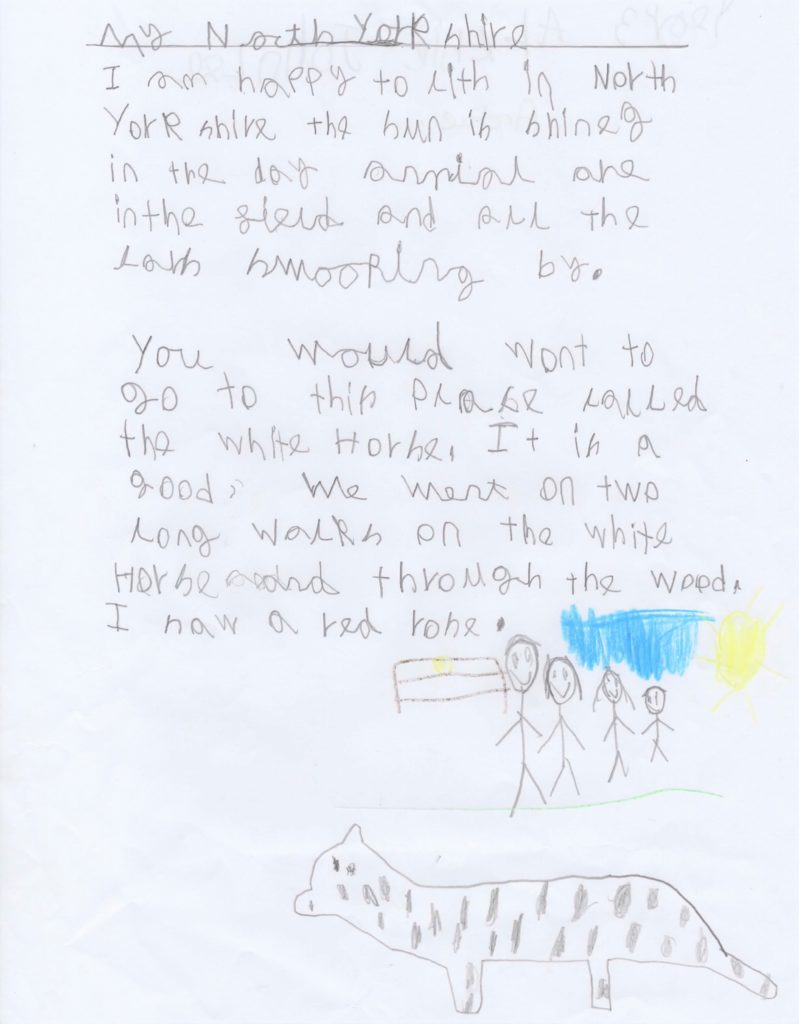 My North Yorkshire
I am happy to lith in North
Yorkshire the sun is shineg
in the day aminal are
in the field and all the
cars smooking by.
You would wont to
go to this Plase called
the white Horse. It is a
good. We went on two
long walks on the white
Horse and through the wood.
I saw a red rose.